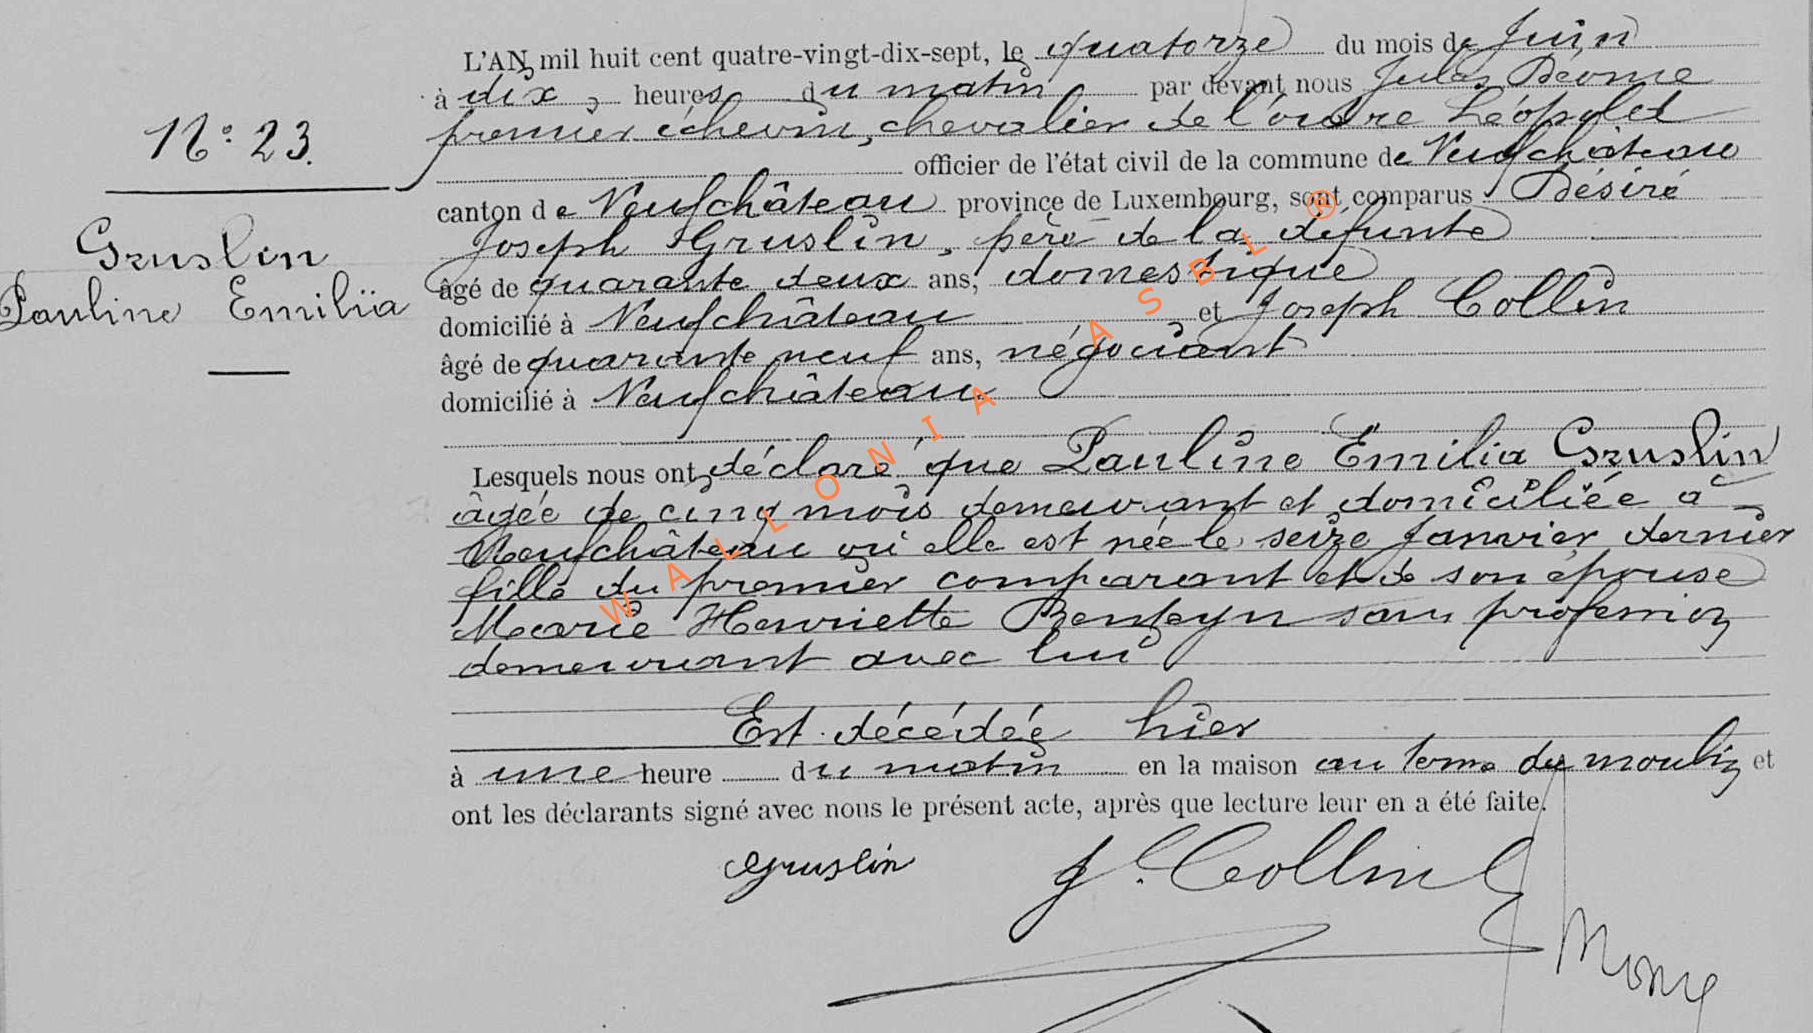 L'AN mil huit cent quatre-vingt-dix-sept, le quatorze du mois de Juin
à dix heures du matin par devant nous Jules Déome
premier échevin, chevalier de l'ordre Léopold
N° 23.
officier de l'état civil de la commune de Neufchâteau
canton de Neufchâteau province de Luxembourg, sont comparus Désiré
Joseph Gruslin, père de la défunte
Gruslin
Pauline Emilia
âgé de quarante deux ans, domestique
domicilié à Neufchâteau et Joseph Collin
âgé de quarante neuf ans, négociant
domicilié à Neufchâteau
Lesquels nous ont déclaré que Pauline Emilia Gruslin
âgée de cinq mois demeurant et domiciliée à
Neufchâteau où elle est née le seize Janvier dernier
fille du premier comparant et de son épouse
Marie Henriette sans profession
demeurant avec lui
Est décédée hier
à une heure du matin en la maison au terme du moulin et
ont les déclarants signé avec nous le présent acte, après que lecture leur en a été faite.
Gruslin J. Collin
WALLONIA ASBL ®